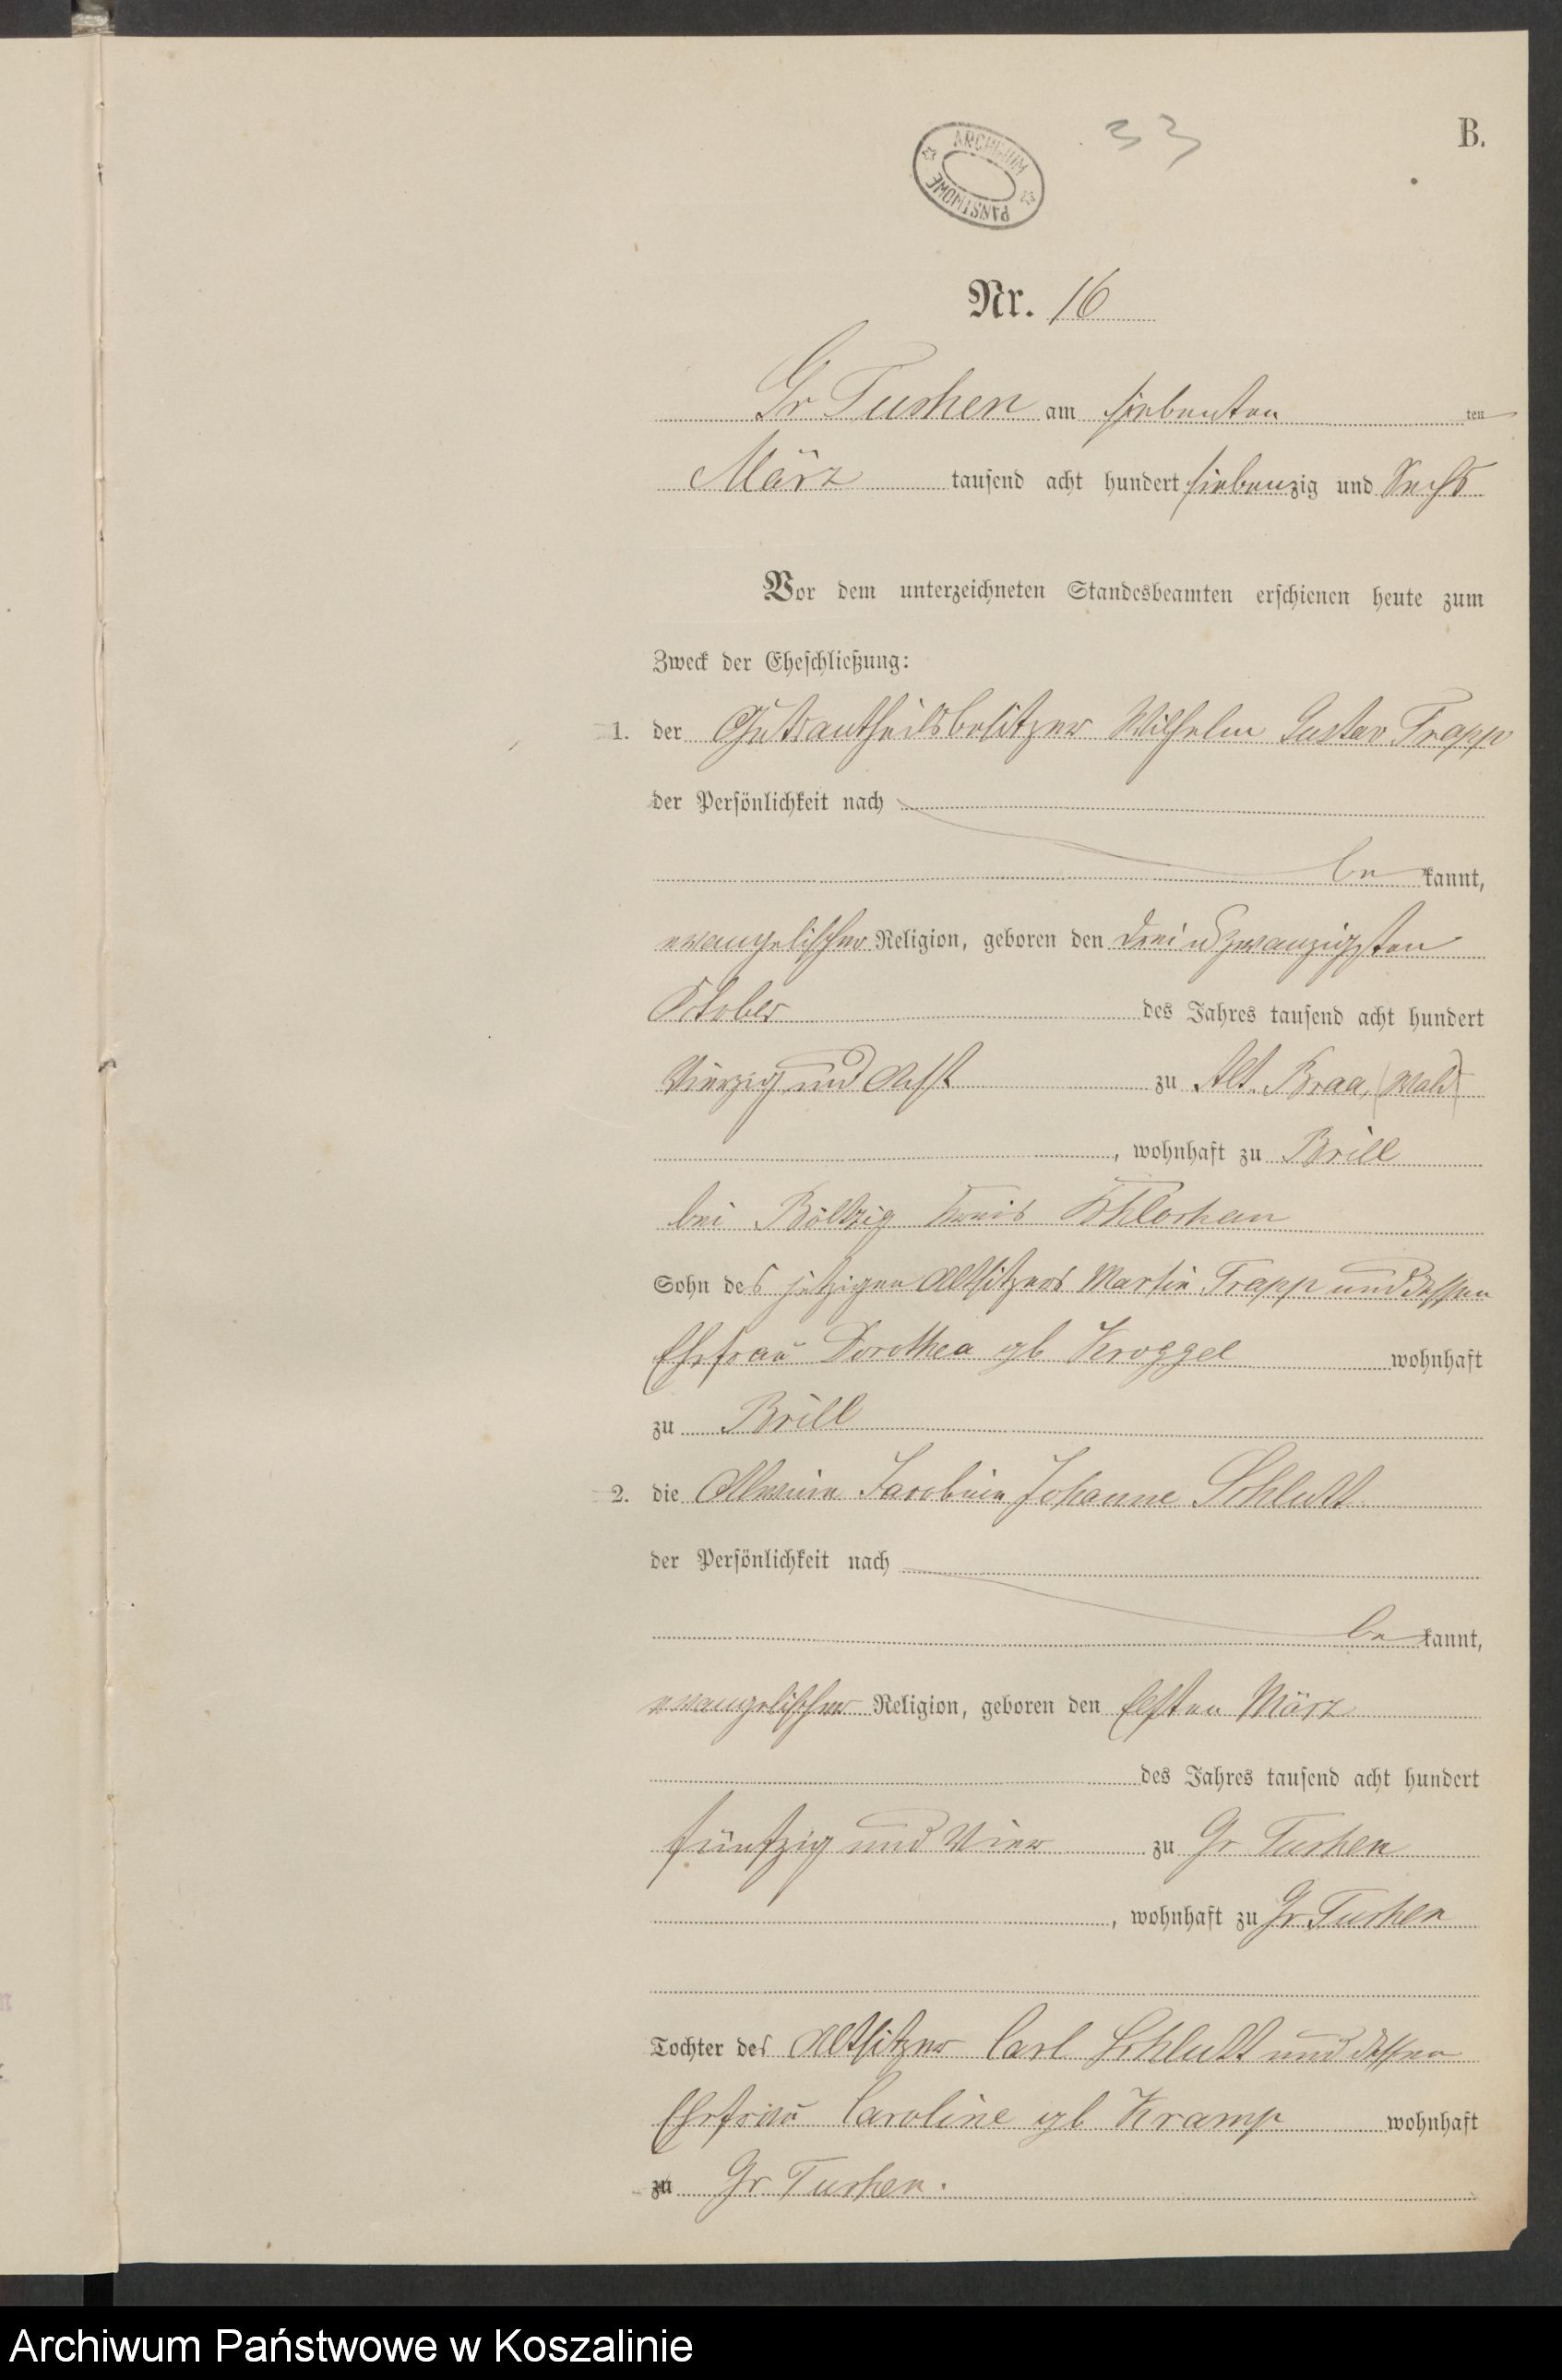 33
B.
ARCHIWUM PAŃSTWOWE
Nr. 16
Gr Tuchen am siebenten ten
März tausend acht hundert siebenzig und Sechs
Vor dem unterzeichneten Standesbeamten erschienen heute zum
Zweck der Eheschließung:
1. der Gutsantheilsbesitzer Wilhelm Gustav Trapp
der Persönlichkeit nach
be kannt,
evangelischer Religion, geboren den drei u zwanzigsten
October des Jahres tausend acht hundert
Vierzig und Acht zu Alt. Braa, (Wald)
, wohnhaft zu Brill
bei Böltzig Kreis Schlochau
Sohn des jetzigen Altsitzers Martin Trapp und dessen
Ehefrau Dorothea gb Kroggel wohnhaft
zu Brill
2. die Albertine Jacobine Johanne Schlutt
der Persönlichkeit nach
be kannt,
evangelischer Religion, geboren den Elften März
des Jahres tausend acht hundert
fünfzig und Vier zu Gr Tuchen
, wohnhaft zu Gr Tuchen
Tochter des Altsitzer Carl Schlutt und dessen
Ehefrau Caroline gb Kramp wohnhaft
zu Gr Tuchen.
Archiwum Państwowe w Koszalinie